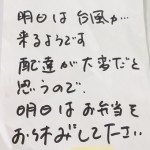 明日は台風が…
来るようです
配達が大変だと
思うので、
明日はお弁当を
お休みしてください